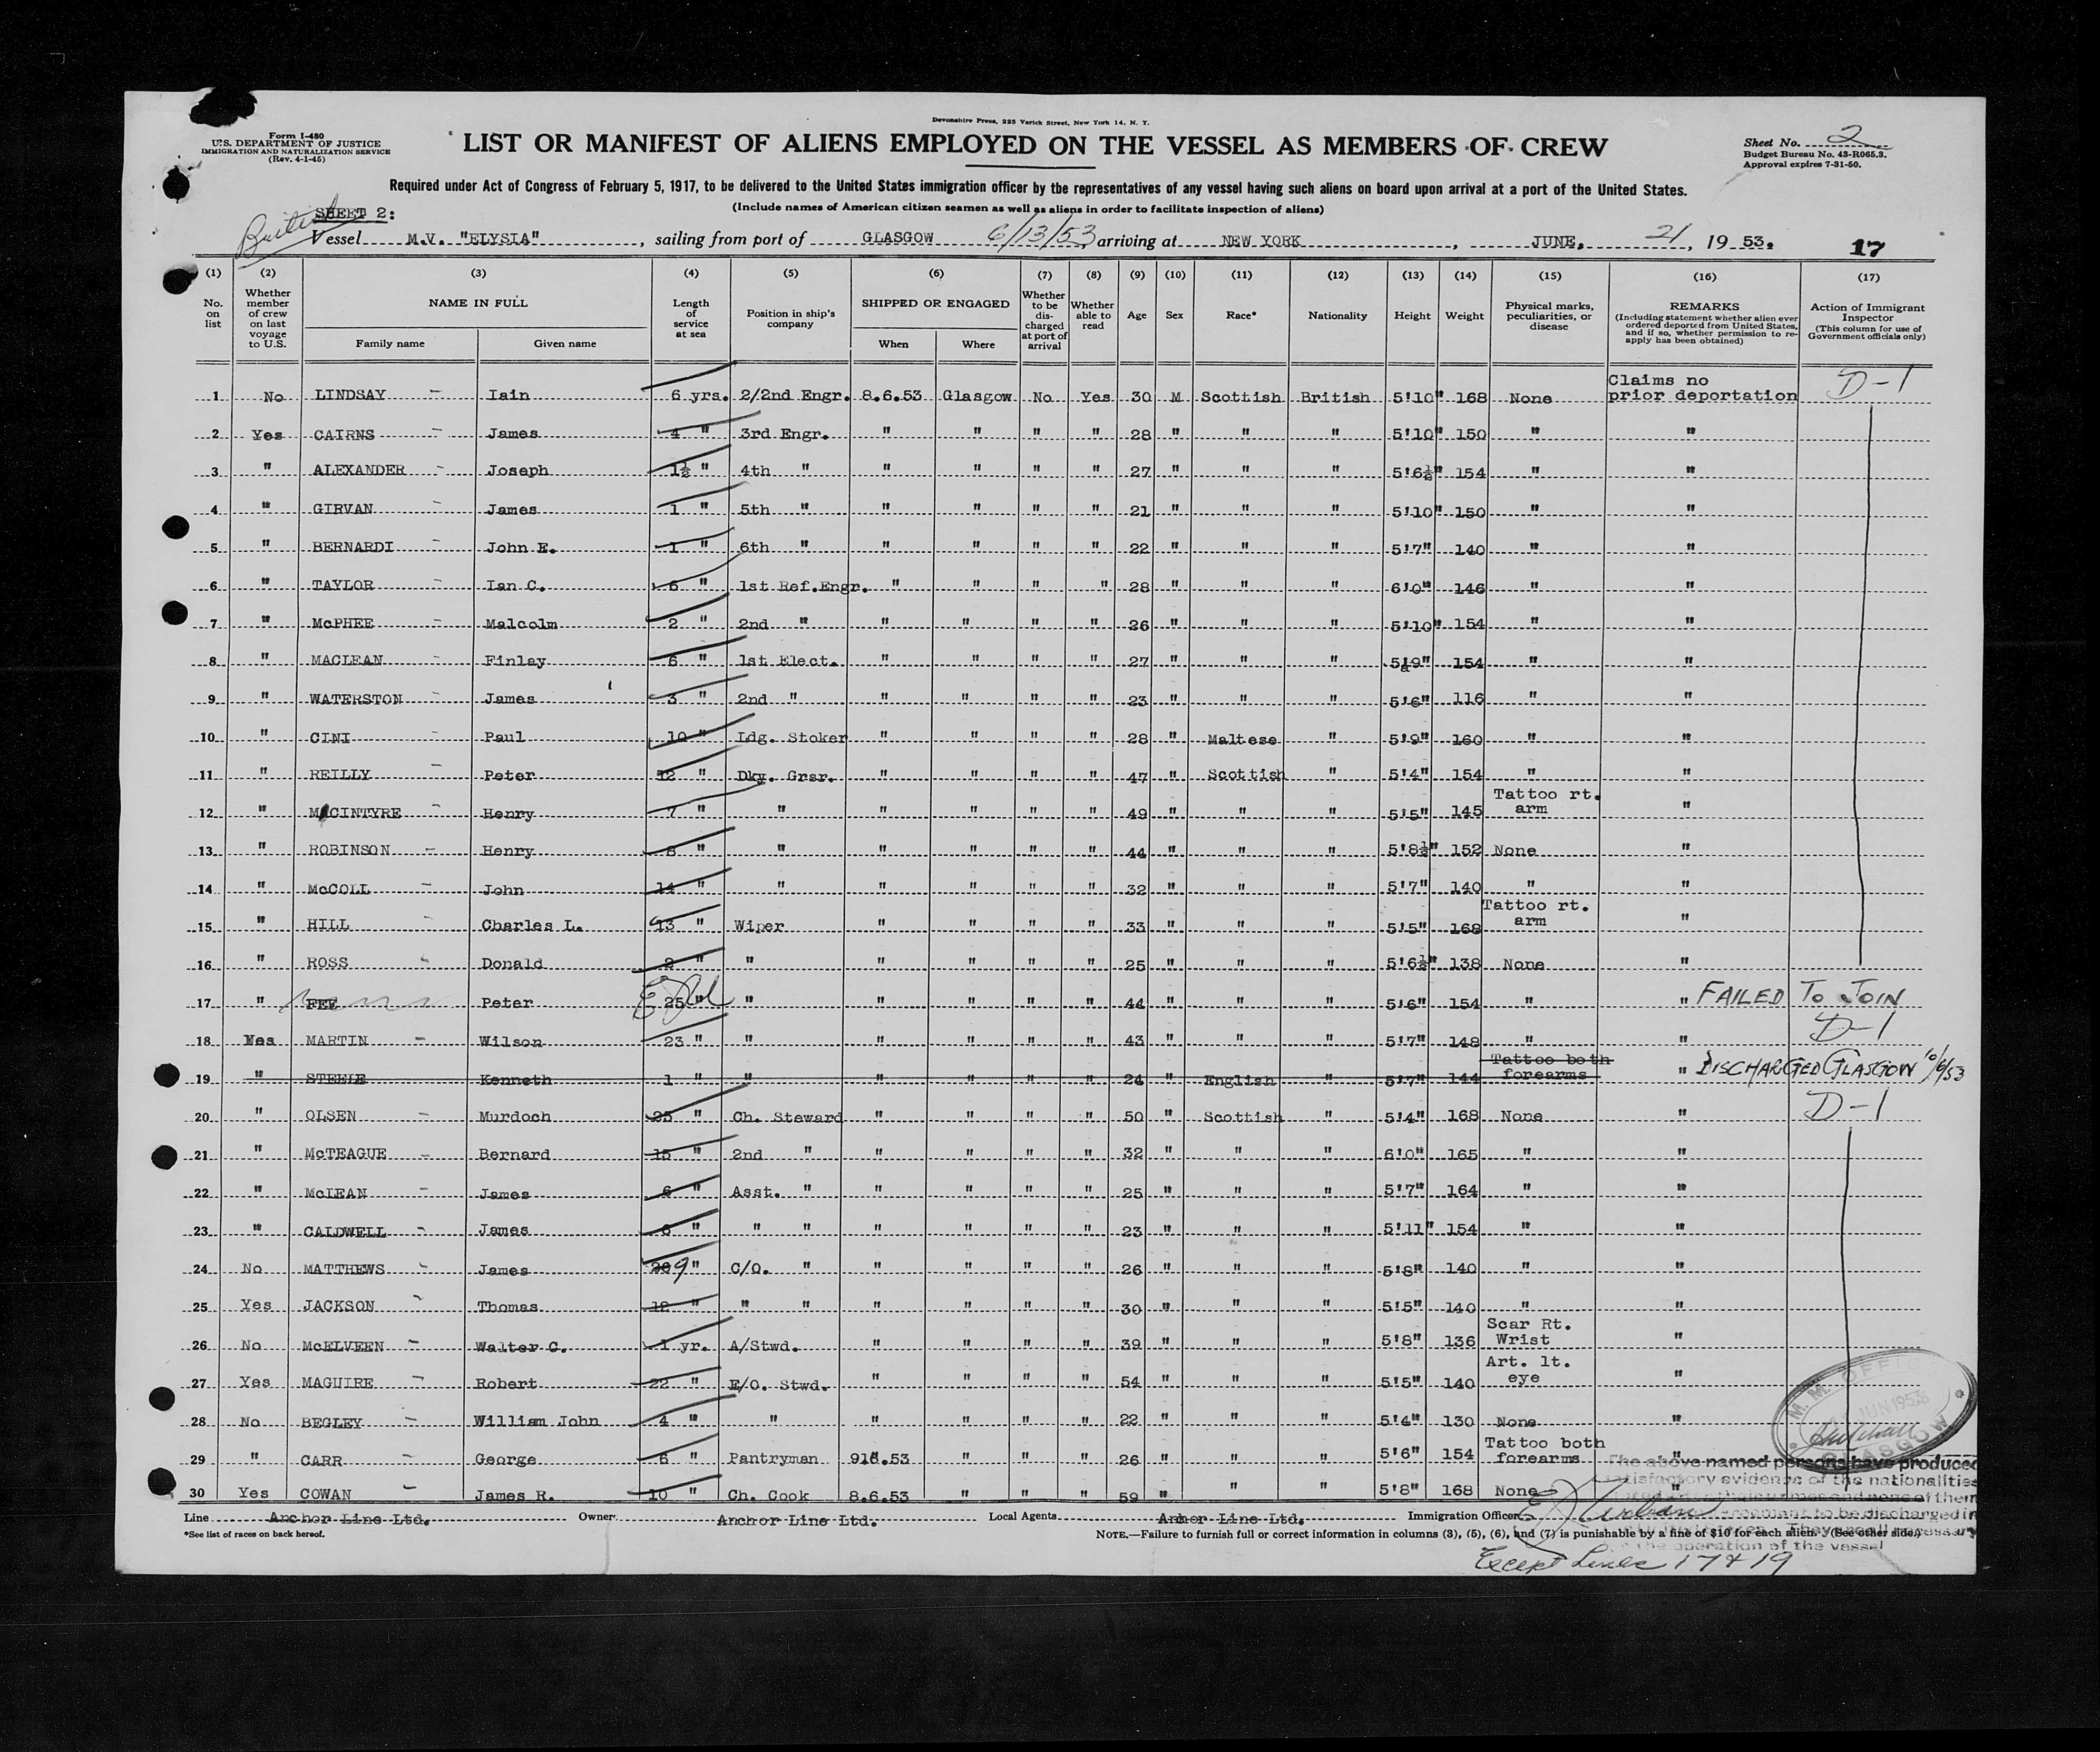 Devonshire Press, 225 Varick Street, New York 14, N. Y.
Form I-480
U.S. DEPARTMENT OF JUSTICE
IMMIGRATION AND NATURALIZATION SERVICE
(Rev. 4-1-45)
LIST OR MANIFEST OF ALIENS EMPLOYED ON THE VESSEL AS MEMBERS OF CREW
Sheet No. 2
Budget Bureau No. 43-R065.3.
Approval expires 7-31-50.
Required under Act of Congress of February 5, 1917, to be delivered to the United States immigration officer by the representatives of any vessel having such aliens on board upon arrival at a port of the United States.
(Include names of American citizen seamen as well as aliens in order to facilitate inspection of aliens)
SHEET 2:
British
Vessel M.V. "ELYSIA", sailing from port of GLASGOW 6/13/53, arriving at NEW YORK, JUNE, 21, 19 53. 17
(1) (2) (3) (4) (5) (6) (7) (8) (9) (10) (11) (12) (13) (14) (15) (16) (17)
No. on list
Whether member of crew on last voyage to U.S.
NAME IN FULL
Family name
Given name
Length of service at sea
Position in ship's company
SHIPPED OR ENGAGED
When
Where
Whether to be discharged at port of arrival
Whether able to read
Age
Sex
Race*
Nationality
Height
Weight
Physical marks, peculiarities, or disease
REMARKS
(Including statement whether alien ever ordered deported from United States, and if so, whether permission to re-apply has been obtained)
Action of Immigrant Inspector
(This column for use of Government officials only)
1 No LINDSAY - Iain 6 yrs. 2/2nd Engr. 8.6.53 Glasgow No Yes 30 M Scottish British 5'10" 168 None Claims no prior deportation D-1
2 Yes CAIRNS - James 4 " 3rd Engr. " " " " 28 " " " 5'10" 150 " "
3 " ALEXANDER - Joseph 1½ " 4th " " " " " 27 " " " 5'6½" 154 " "
4 " GIRVAN - James 1 " 5th " " " " " 21 " " " 5'10" 150 " "
5 " BERNARDI - John E. 1 " 6th " " " " " 22 " " " 5'7" 140 " "
6 " TAYLOR - Ian C. 6 " 1st Ref.Engr. " " " " 28 " " " 6'0" 146 " "
7 " McPHEE - Malcolm 2 " 2nd " " " " " 26 " " " 5'10" 154 " "
8 " MACLEAN - Finlay 6 " 1st Elect. " " " " 27 " " " 5'9" 154 " "
9 " WATERSTON - James 3 " 2nd " " " " " 23 " " " 5'6" 116 " "
10 " CINI - Paul 10 " Ldg. Stoker " " " " 28 " Maltese " 5'9" 160 " "
11 " REILLY - Peter 12 " Dky. Grsr. " " " " 47 " Scottish " 5'4" 154 " "
12 " McINTYRE - Henry 7 " " " " " " 49 " " " 5'5" 145 Tattoo rt. arm "
13 " ROBINSON - Henry 8 " " " " " " 44 " " " 5'8½" 152 None "
14 " McCOLL - John 14 " " " " " " 32 " " " 5'7" 140 " "
15 " HILL - Charles L. 13 " Wiper " " " " 33 " " " 5'5" 168 Tattoo rt. arm "
16 " ROSS - Donald 2 " " " " " " 25 " " " 5'6½" 138 None "
17 " FEE Peter 25 " " " " " " 44 " " " 5'6" 154 " " FAILED TO JOIN
18 Yes MARTIN - Wilson 23 " " " " " " 43 " " " 5'7" 148 " " D-1
19 " STEELE Kenneth 1 " " " " " " 24 " English " 5'7" 144 Tattoo both forearms " DISCHARGED GLASGOW 10/6/53
20 " OLSEN - Murdoch 25 " Ch. Steward " " " " 50 " Scottish " 5'4" 168 None " D-1
21 " McTEAGUE - Bernard 15 " 2nd " " " " " 32 " " " 6'0" 165 " "
22 " McLEAN - James 6 " Asst. " " " " " 25 " " " 5'7" 164 " "
23 " CALDWELL - James 8 " " " " " " " 23 " " " 5'11" 154 " "
24 No MATTHEWS - James 9 " C/O. " " " " " 26 " " " 5'8" 140 " "
25 Yes JACKSON - Thomas 12 " " " " " " " 30 " " " 5'5" 140 " "
26 No McELVEEN - Walter C. 1 yr. A/Stwd. " " " " 39 " " " 5'8" 136 Scar Rt. Wrist "
27 Yes MAGUIRE - Robert 22 " E/O. Stwd. " " " " 54 " " " 5'5" 140 Art. lt. eye "
28 No BEGLEY - William John 4 " " " " " " 22 " " " 5'4" 130 None "
29 " CARR - George 6 " Pantryman 9.6.53 " " " 26 " " " 5'6" 154 Tattoo both forearms "
30 Yes COWAN - James R. 10 " Ch. Cook 8.6.53 " " " 59 " " " 5'8" 168 None "
M. M. OFFICE
JUN 1953
GLASGOW
The above named persons have produced
satisfactory evidence of the nationalities
and none of them
to be discharged in
They are all necessary
the operation of the vessel
Line Anchor Line Ltd. Owner Anchor Line Ltd. Local Agents Anhor Line Ltd. Immigration Officer
*See list of races on back hereof.
NOTE.—Failure to furnish full or correct information in columns (3), (5), (6), and (7) is punishable by a fine of $10 for each alien. (See other side.)
Except Lines 17 & 19